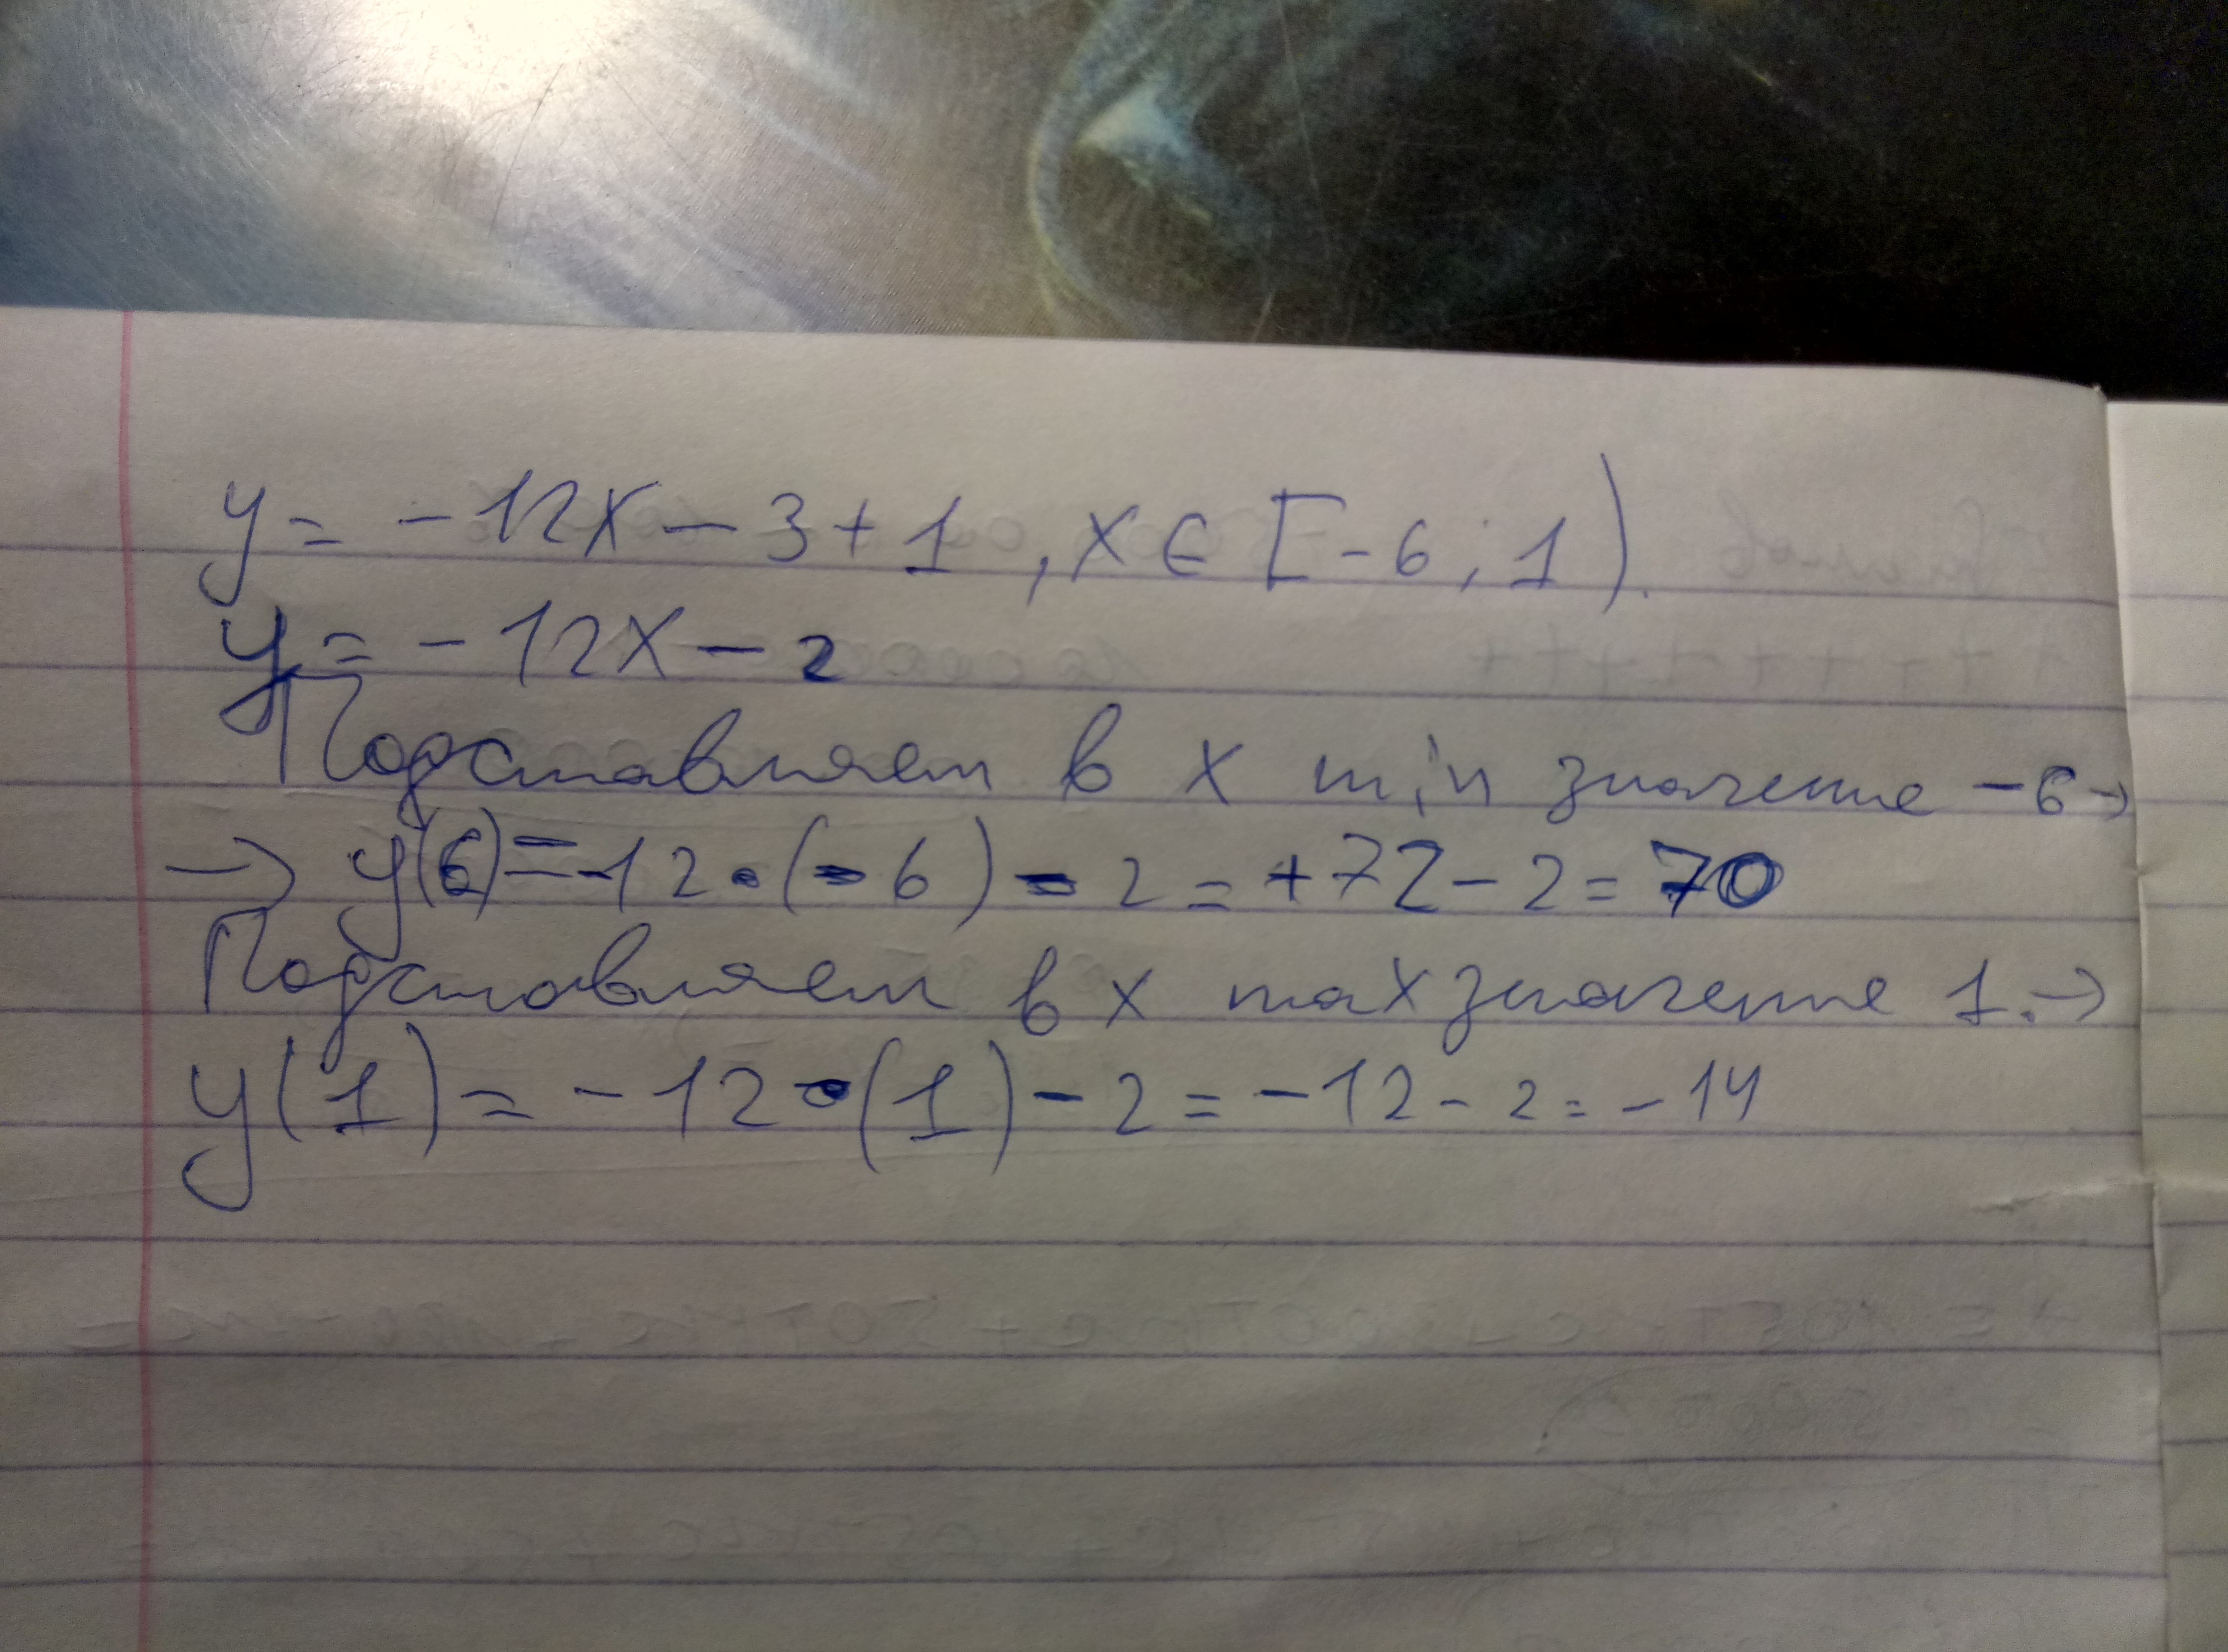 y = -12x - 3 + 1 , x ∈ [-6 ; 1).
y = -12x - 2
Подставляем в x min значение -6 →
→ y(6) = -12 · (-6) - 2 = +72 - 2 = 70
Подставляем в x max значение 1. →
y(1) = -12 · (1) - 2 = -12 - 2 = -14